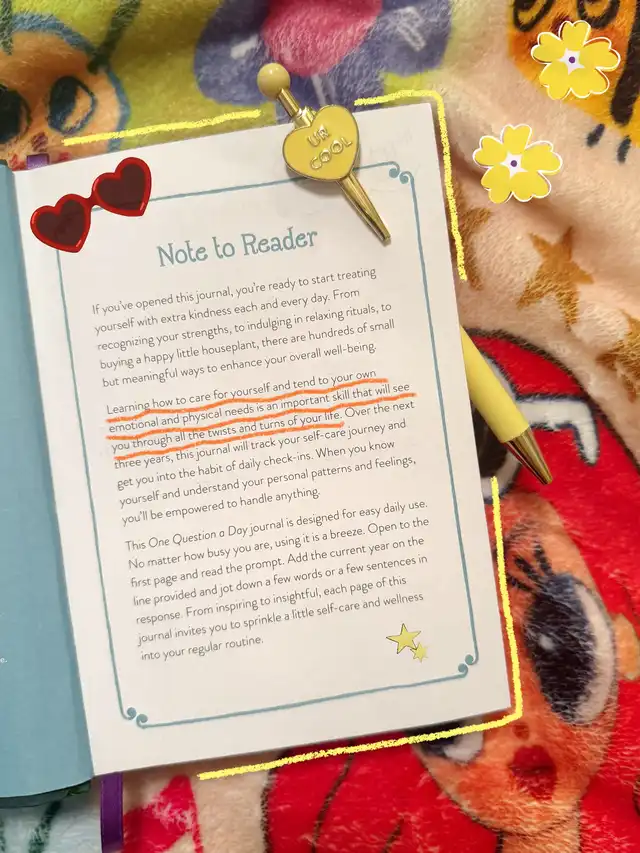 UR
COOL
Note to Reader
If you've opened this journal, you're ready to start treating
yourself with extra kindness each and every day. From
recognizing your strengths, to indulging in relaxing rituals, to
buying a happy little houseplant, there are hundreds of small
but meaningful ways to enhance your overall well-being.
Learning how to care for yourself and tend to your own
emotional and physical needs is an important skill that will see
you through all the twists and turns of your life. Over the next
three years, this journal will track your self-care journey and
get you into the habit of daily check-ins. When you know
yourself and understand your personal patterns and feelings,
you'll be empowered to handle anything.
This One Question a Day journal is designed for easy daily use.
No matter how busy you are, using it is a breeze. Open to the
first page and read the prompt. Add the current year on the
line provided and jot down a few words or a few sentences in
response. From inspiring to insightful, each page of this
journal invites you to sprinkle a little self-care and wellness
into your regular routine.